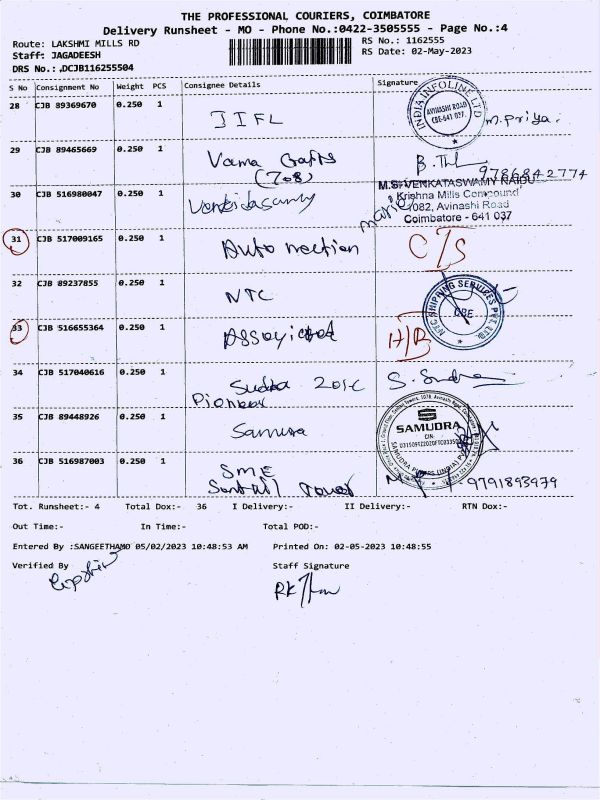 THE PROFESSIONAL COURIERS, COIMBATORE
Delivery Runsheet - MO - Phone No.:0422-3505555 - Page No.:4
Route: LAKSHMI MILLS RD
RS No.: 1162555
Staff: JAGADEESH
RS Date: 02-May-2023
DRS No.: DCJB116255504
S No Consignment No Weight PCS Consignee Details Signature
28 CJB 89369670 0.250 1 IIFL M.Priya.
INDIA INFOLINE LTD
AVINASHI ROAD
CBE-641 027.
29 CJB 89465669 0.250 1 Vama Crafts
(708)
9786842774
30 CJB 516980047 0.250 1 Venkidasamy
M.S. VENKATASWAMY NAIDU
Krishna Mills Compound
1082, Avinashi Road
Coimbatore - 641 037
31 CJB 517009165 0.250 1 Auto C/S
32 CJB 89237855 0.250 1 NTC
NTC SHIPPING SERVICES PVT. LTD.
CBE
33 CJB 516655364 0.250 1 H/B
34 CJB 517040616 0.250 1
Pioneer
35 CJB 89448926 0.250 1
SAMUDRA
CIN:
36 CJB 516987003 0.250 1 SME
9791893979
Tot. Runsheet:- 4 Total Dox:- 36 I Delivery:- II Delivery:- RTN Dox:-
Out Time:- In Time:- Total POD:-
Entered By :SANGEETHAMO 05/02/2023 10:48:53 AM Printed On: 02-05-2023 10:48:55
Verified By Staff Signature